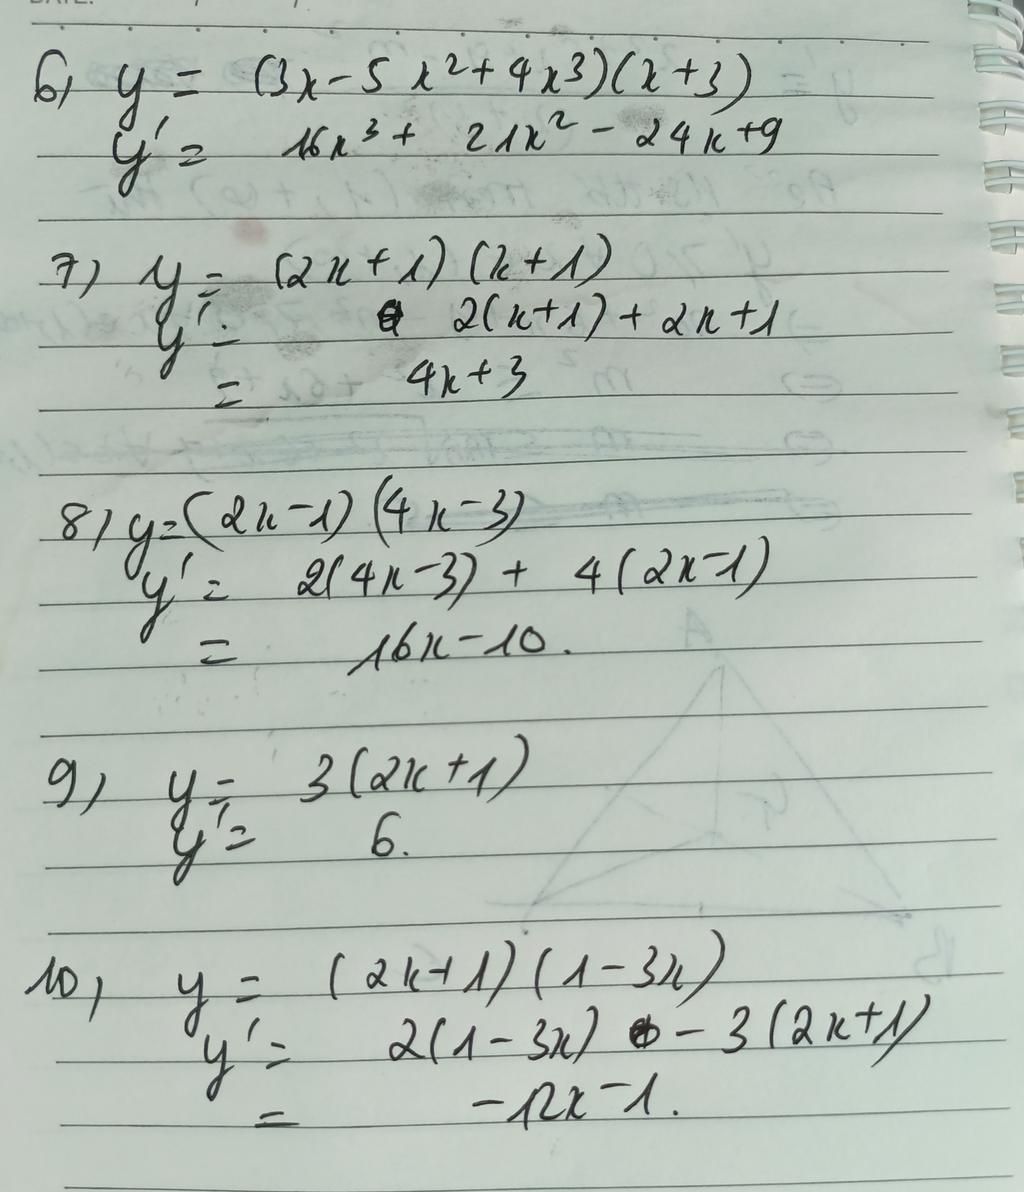 DATE:
6) y = (3x - 5x² + 4x³)(x + 3)
y' = 16x³ + 21x² - 24x + 9
7) y = (2x + 1)(x + 1)
y' = 2(x+1) + 2x + 1
= 4x + 3
8) y = (2x - 1)(4x - 3)
y' = 2(4x - 3) + 4(2x - 1)
= 16x - 10.
9) y = 3(2x + 1)
y' = 6.
10) y = (2x + 1)(1 - 3x)
y' = 2(1 - 3x) - 3(2x + 1)
= -12x - 1.